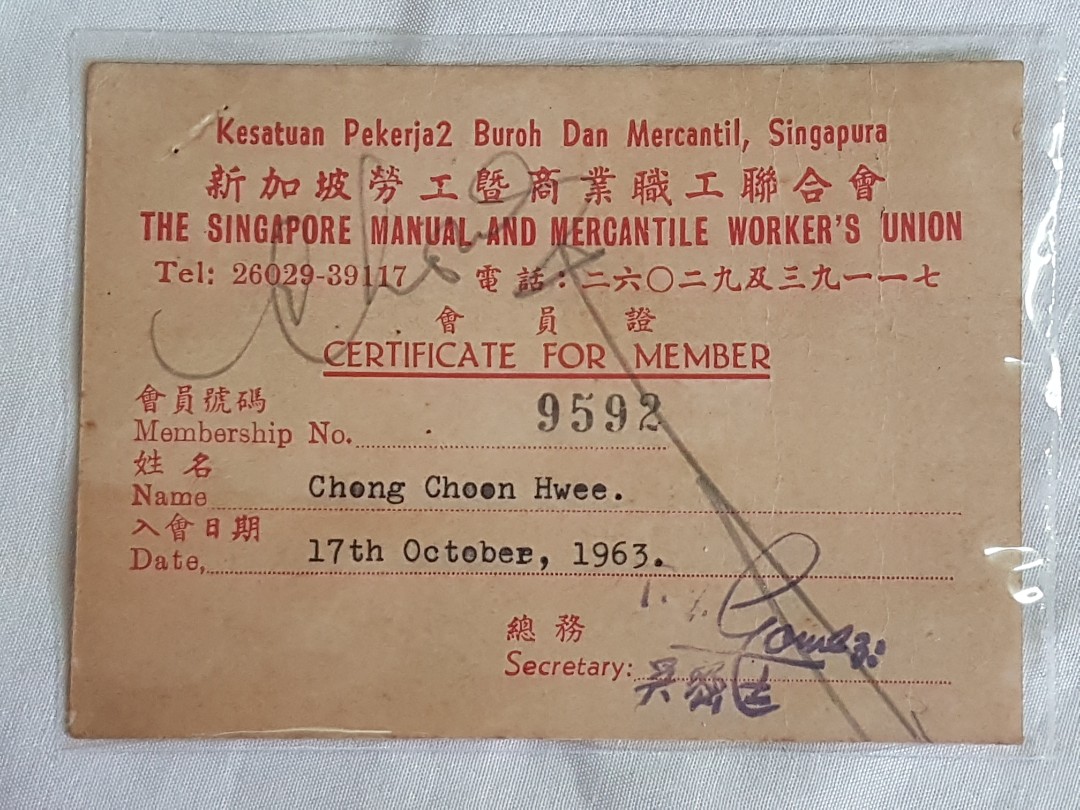 Kesatuan Pekerja2 Buroh Dan Mercantil, Singapura
新加坡勞工暨商業職工聯合會
THE SINGAPORE MANUAL AND MERCANTILE WORKER'S UNION
Tel: 26029-39117 電話:二六〇二九及三九一一七
會員證
CERTIFICATE FOR MEMBER
會員號碼
Membership No. 9592
姓名
Name Chong Choon Hwee.
入會日期
Date, 17th October, 1963.
總務
Secretary: